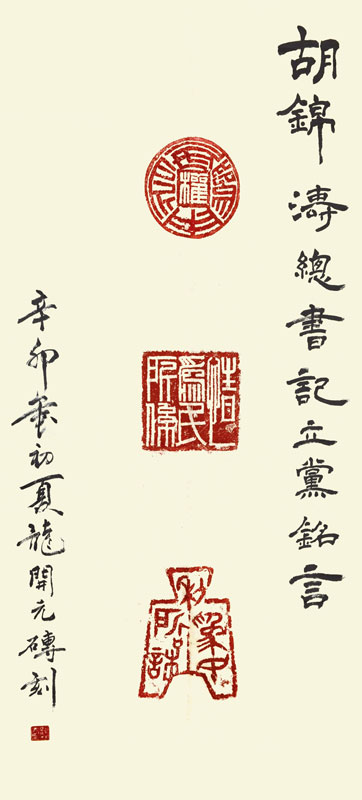 胡錦濤總書記立黨銘言
權為民所用
情為民所係
利為民所謀
辛卯秊初夏龍開元磚刻